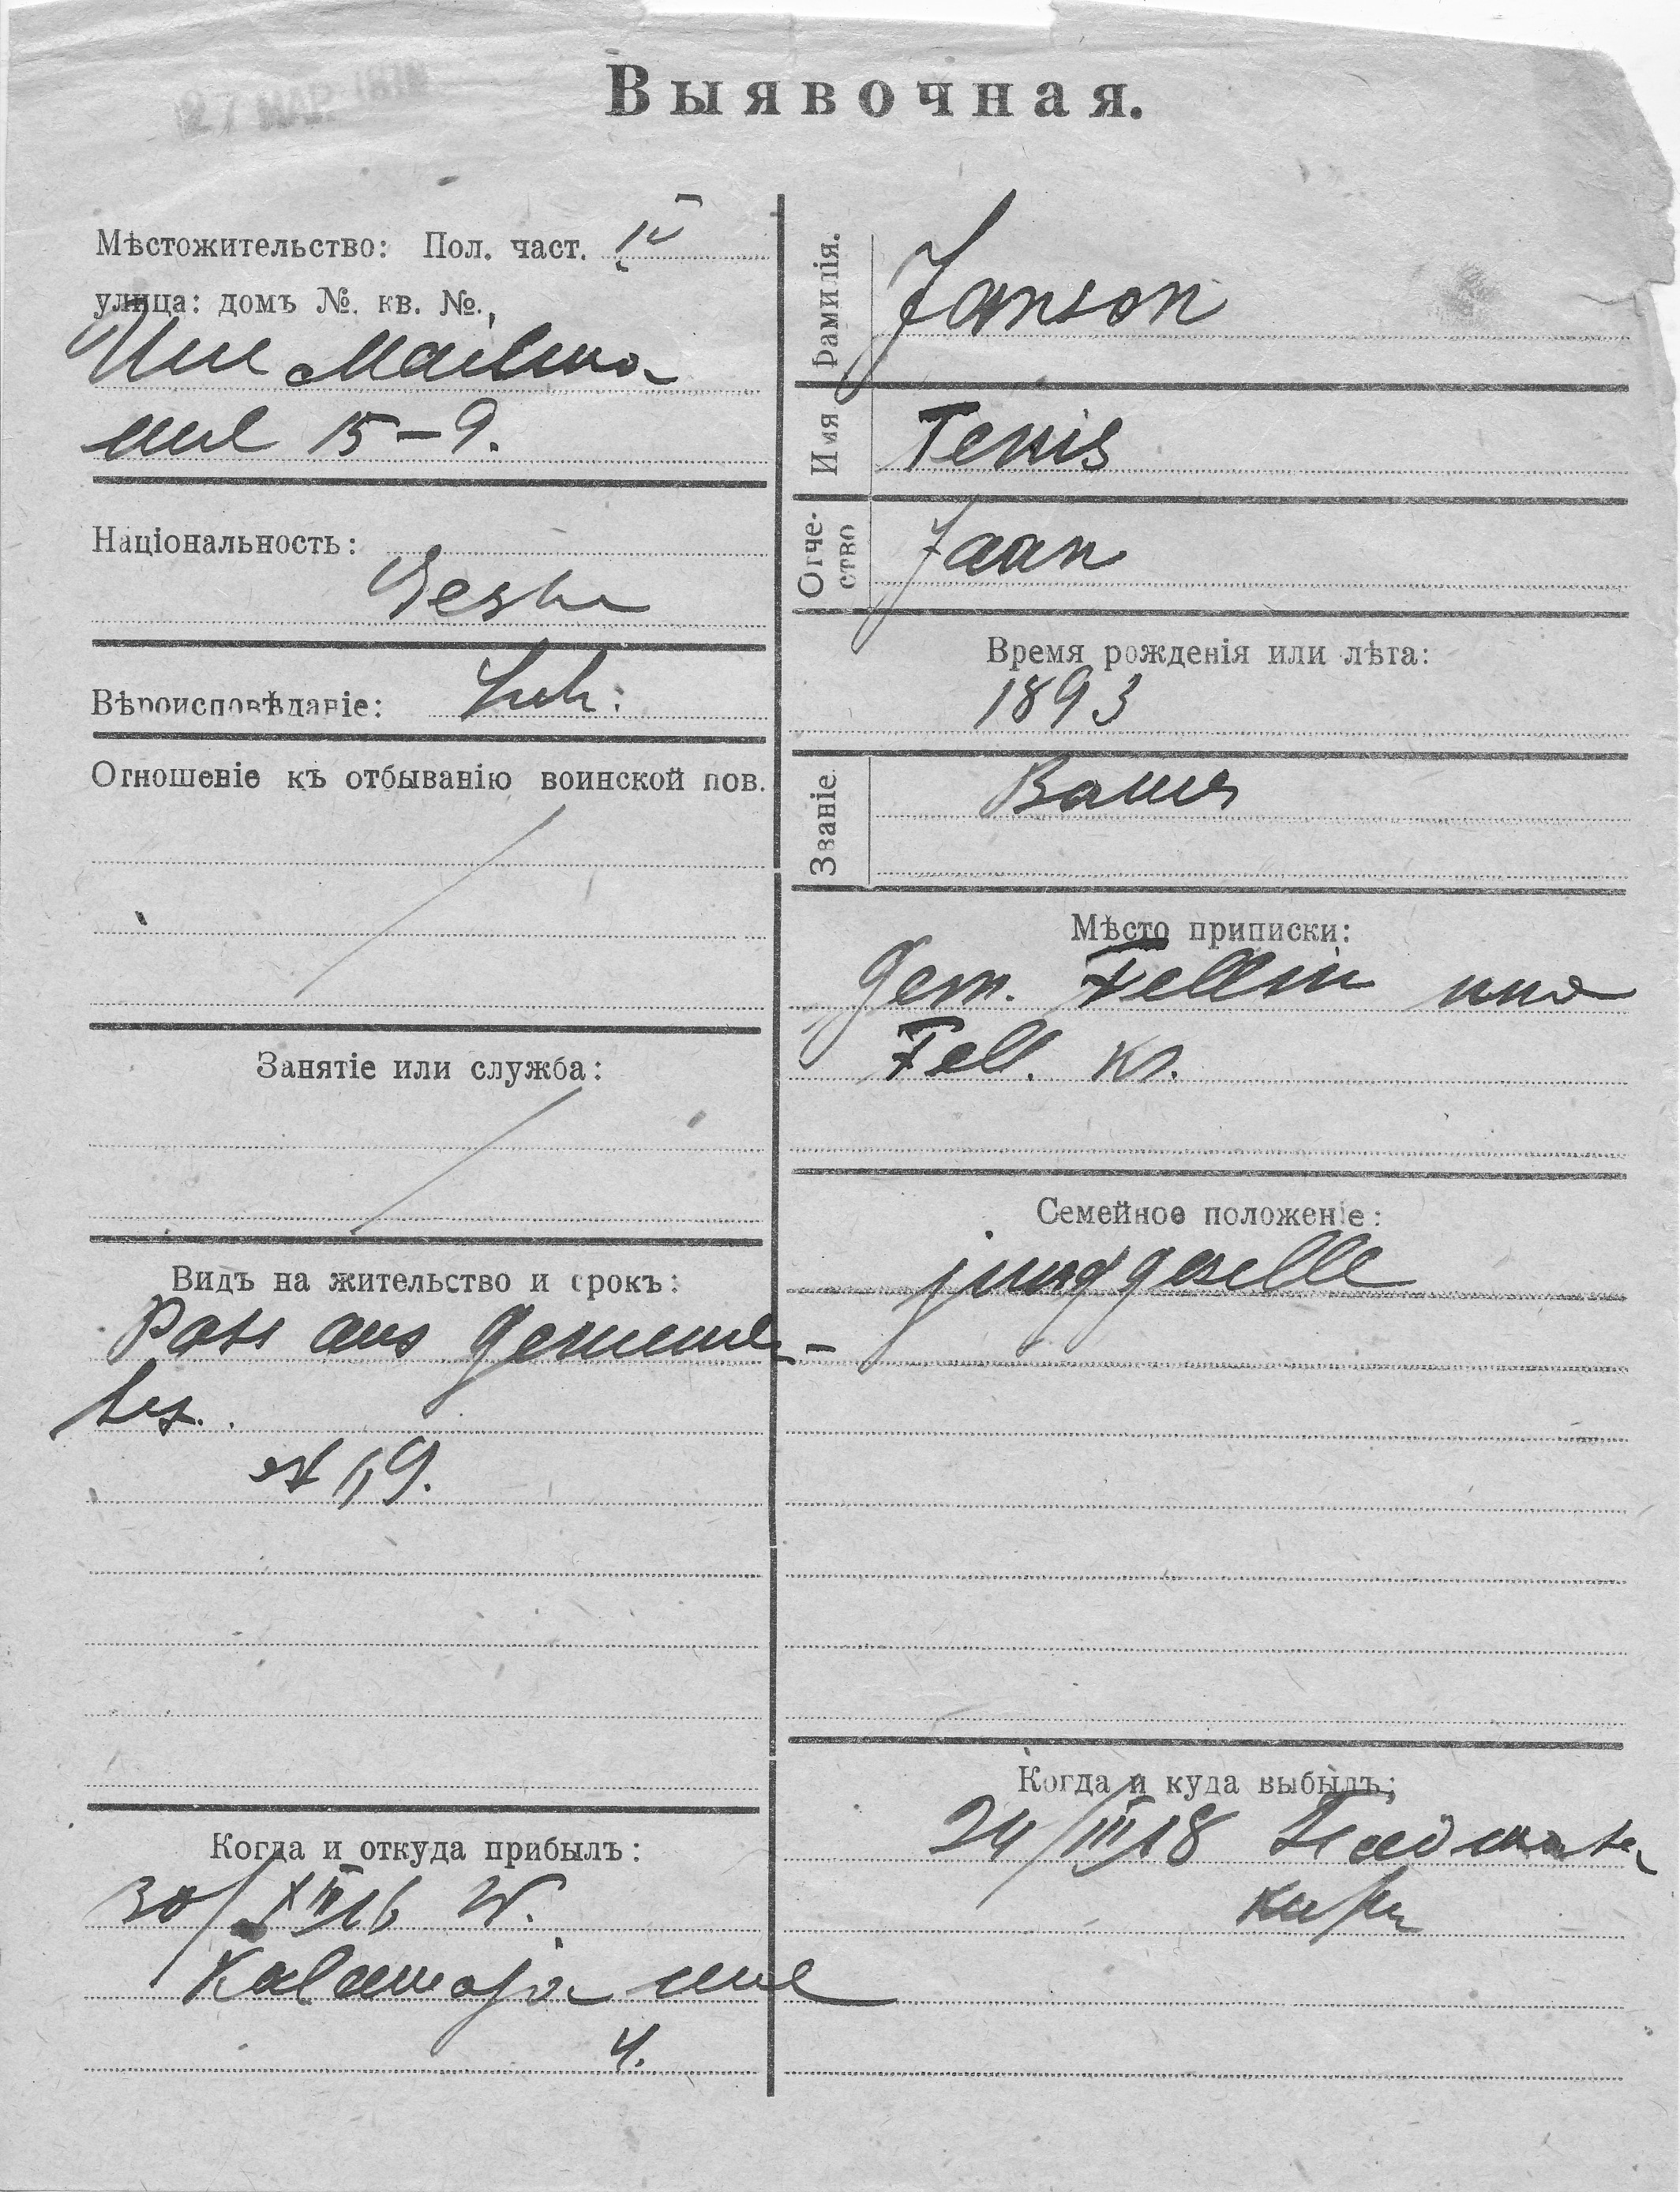 Выявочная.
27 МАР.
Мѣстожительство: Пол. част. IV
улица: домъ №. кв. №.
15-9.
Національность:
Вѣроисповѣданіе: Luth:
Отношеніе къ отбыванію воинской пов.
Занятіе или служба:
Видъ на жительство и срокъ:
Pass aus Gemeinde-
№ 19.
Когда и откуда прибылъ:
30/XII 16 W.
Kalamaja
4.
Фамилія. Janson
Имя Tenis
Отчество Jaan
Время рожденія или лѣта:
1893
Званіе. Bauer
Мѣсто приписки:
Gem. Fellin und
Fell. Kr.
Семейное положеніе:
junggeselle
Когда и куда выбылъ:
24/III 18